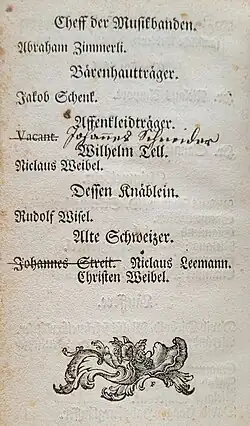 Cheff der Musikbanden.
Abraham Zimmerli.
Bärenhautträger.
Jakob Schenk.
Affenkleidträger.
Vacant. Johanes Schneider
Wilhelm Tell.
Niclaus Weibel.
Dessen Knäblein.
Rudolf Wisel.
Alte Schweizer.
Johannes Streit. Niclaus Leemann.
Christen Weibel.